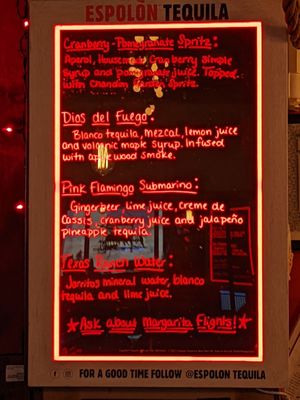 ESPOLÒN TEQUILA
Cranberry-Pomegranate Spritz:
Aperol, Housemade Cranberry Simple
Syrup and pomegranate juice. Topped
with Chandon Garden Spritz.
Dios del Fuego:
Blanco tequila, Mezcal, lemon juice
and volcanic maple syrup. Infused
with applewood smoke.
Pink Flamingo Submarino:
Gingerbeer, lime juice, creme de
Cassis, cranberry juice and jalapeño
pineapple tequila.
Texas Ranch Water:
Jarritos mineral water, blanco
tequila and lime juice.
★Ask about Margarita Flights!★
FOR A GOOD TIME FOLLOW @ESPOLON TEQUILA